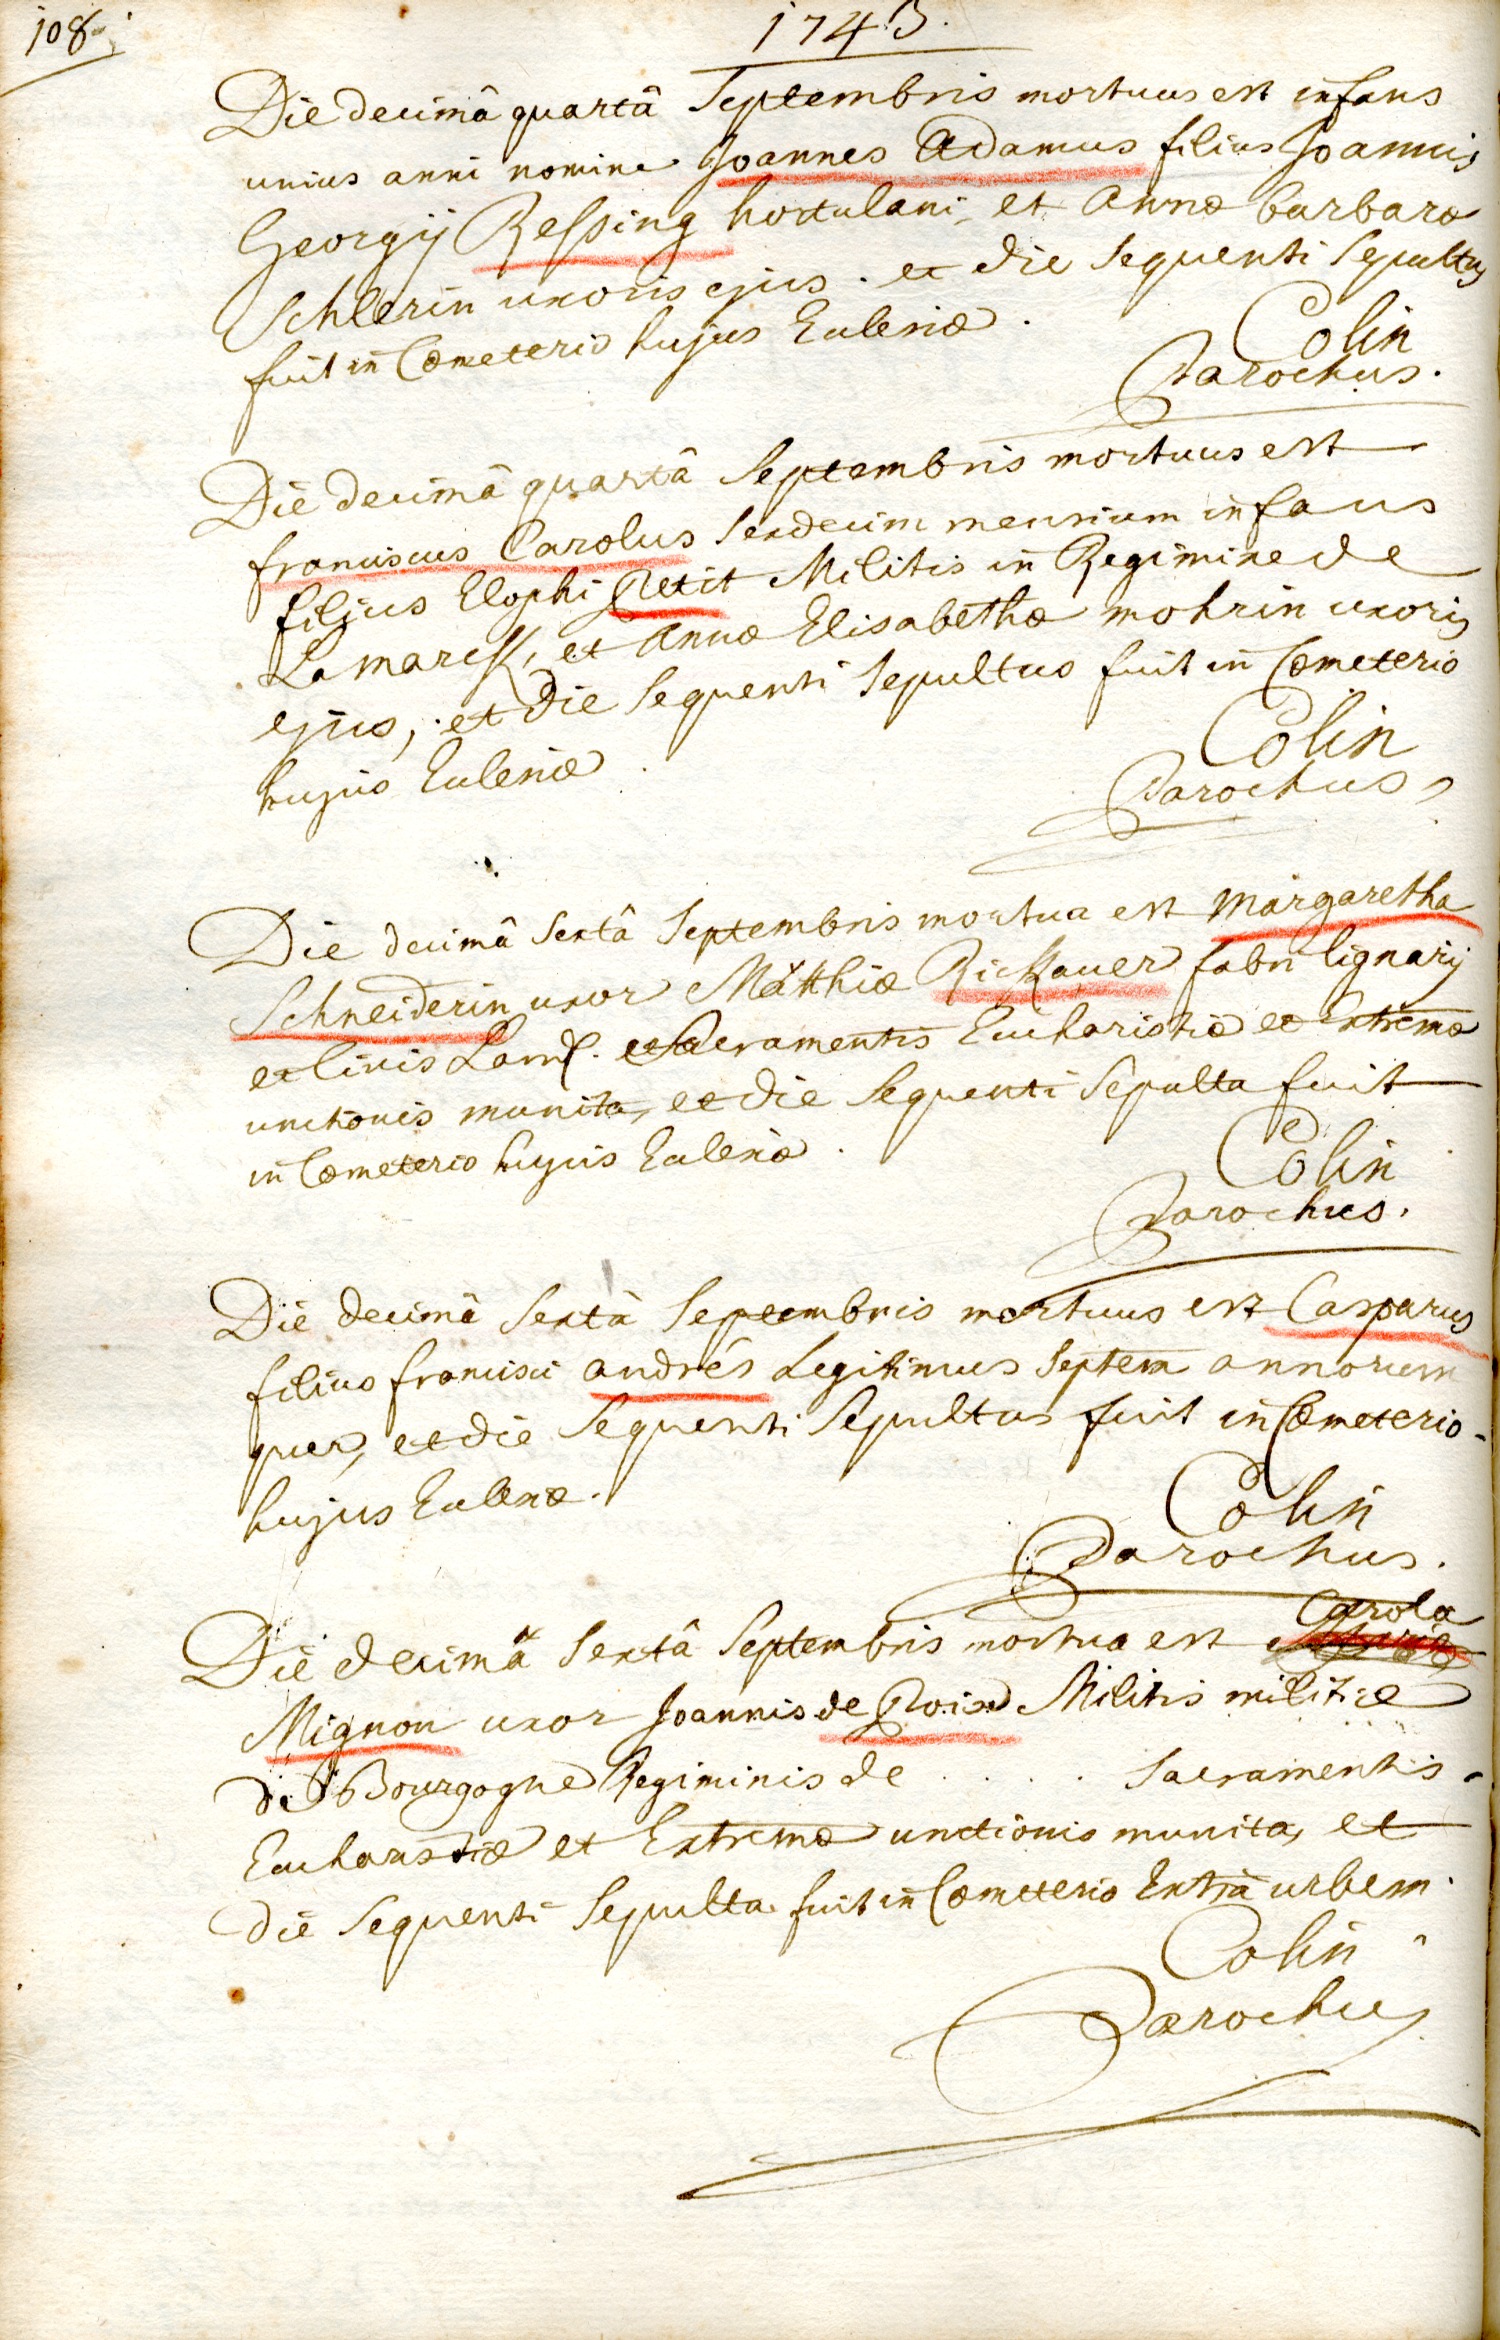 108
1743.
Die decimâ quartâ Septembris mortuus est infans
unius anni nomine Joannes Adamus filius Joannis
Georgij Ressing hortulani, et Annæ barbaræ
Schlerin uxoris ejus. et die sequenti sepultus
fuit in Cœmeterio hujus Ecclesiæ.
Colin
Parochus.
Die decimâ quartâ Septembris mortuus est
franciscus Carolus sexdecim mensium infans
filius Elophi Petit Militis in Regimine de
Lamarck, et Annæ Elisabethæ mohrin uxoris
ejus, et die sequenti sepultus fuit in Cœmeterio
hujus Ecclesiæ.
Colin
Parochus
Die decimâ sextâ Septembris mortua est Margaretha
Schneiderin uxor Matthiæ Rickauer fabri lignarij
et civis Land. Sacramentis Eucharistiæ et Extremæ
unctionis munita, et die sequenti sepulta fuit
in Cœmeterio hujus Ecclesiæ.
Colin
Parochus.
Die decimâ sextâ Septembris mortuus est Casparus
filius francisci andrés Legitimus septem annorum
puer, et die sequenti sepultus fuit in Cœmeterio
hujus Ecclesiæ.
Colin
Parochus.
Carola
Die decimâ sextâ Septembris mortua est
Mignon uxor Joannis de Militis militiæ
de Bourgogne Regiminis de . . . . Sacramentis
Eucharistiæ et Extremæ unctionis munita, et
die sequenti sepulta fuit in Cœmeterio Extrà urbem.
Colin
Parochus